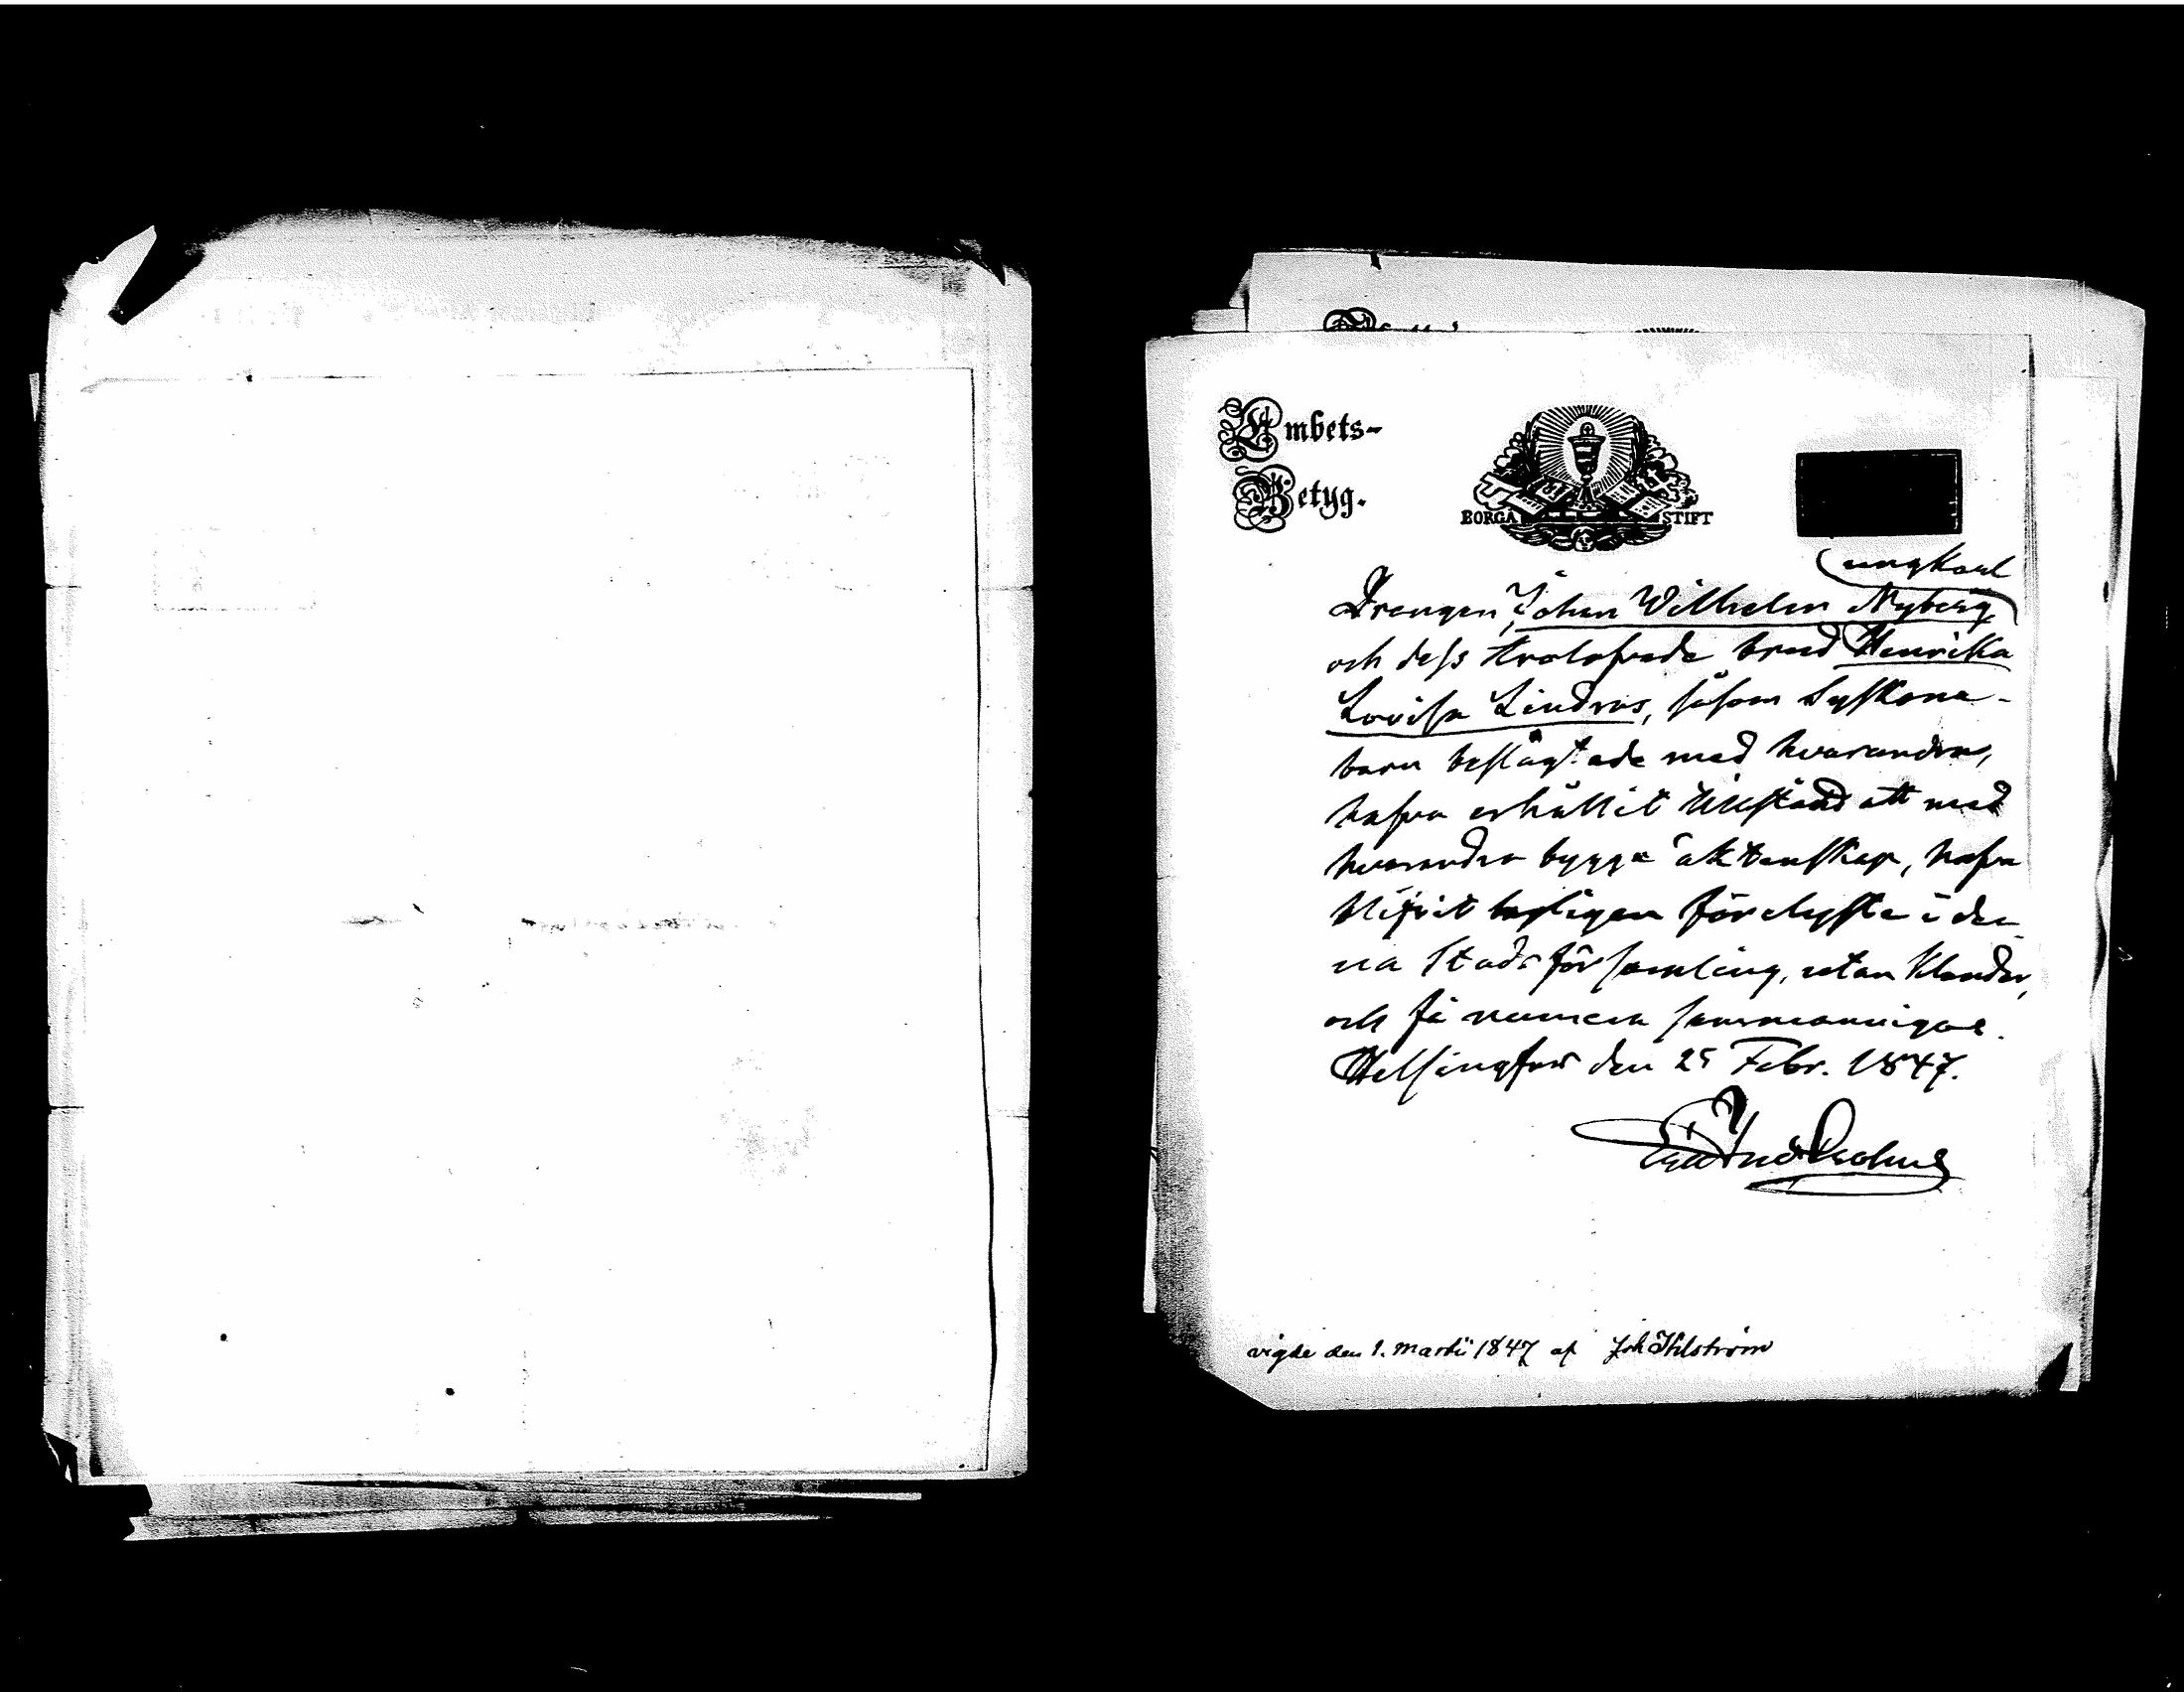 Embets-
Betyg.
BORGÅ STIFT
ungkarl
Drengen Johan Wilhelm Nyberg
och dess trolofvade brud Henrika
Lovisa Lindros, såsom Syskona-
barn beslägtade med hvarandra,
hafva erhållit tillstånd att med
hvarandra bygga äktenskap, hafva
blifvit lagligen förelysta i den-
na Stads församling, utan klander,
och få numera sammanvigas.
Helsingfors den 25 Febr. 1847.
vigde den 1. Martii 1847 af Joh Ihlström